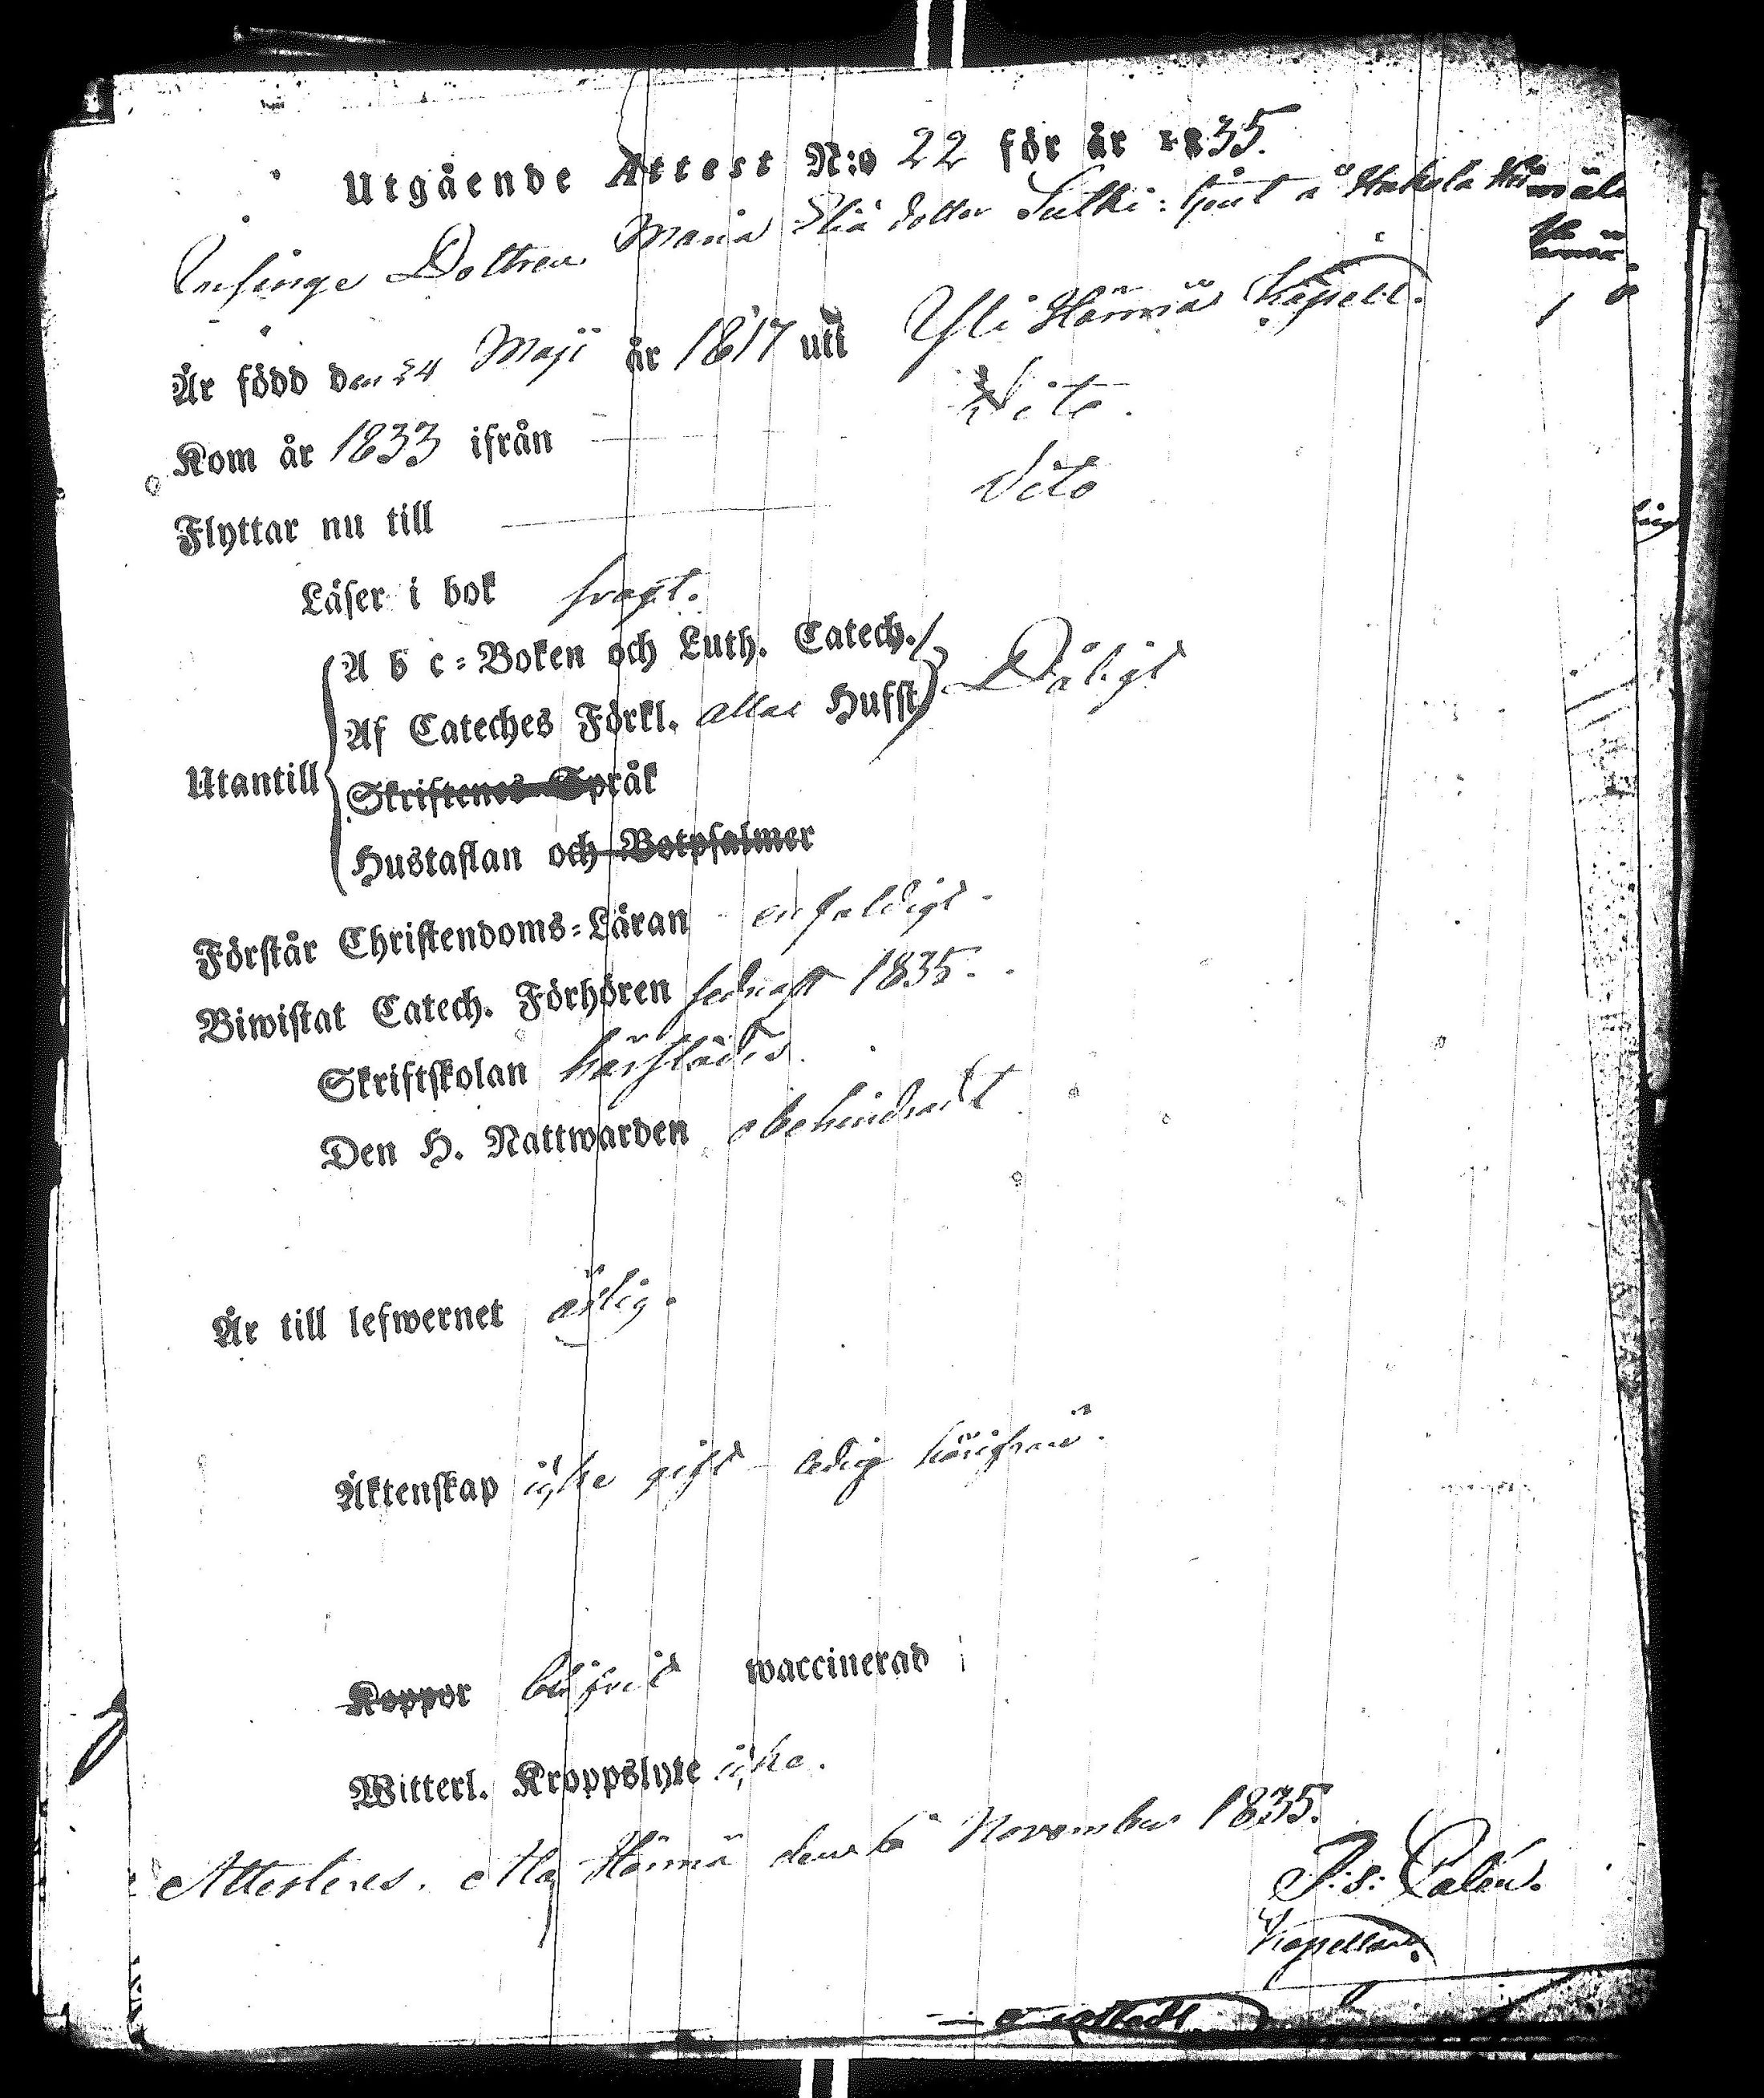 Utgående Attest N:o 22 för år 1835.
Inhinge Dottren Maria Eliä dotter Sutki: tjent å Hakola
Är född den 24 Maji år 1817 uti Yli Härmä Kapell.
Kom år 1833 ifrån — Dito.
Flyttar nu till — Dito
Läser i bok svagt.
A b c-Boken och Luth. Catech.
Af Cateches Förkl. allas Hufst. Dåligt
Utantill
Skriftenes Språk
Hustaflan och Botpsalmer
Förstår Christendoms-Läran enfaldigt.
Biwistat Catech. Förhören sednast 1835.
Skriftskolan härstädes.
Den H. Nattwarden obehindradt
Är till lefwernet ärlig.
Äktenskap icke gift – ledig härifrån.
Koppor waccinerad
Witterl. Kroppslyte icke.
Attesteres. Härmä den 6 November 1835.
J:s: Calén.
Kapellan.